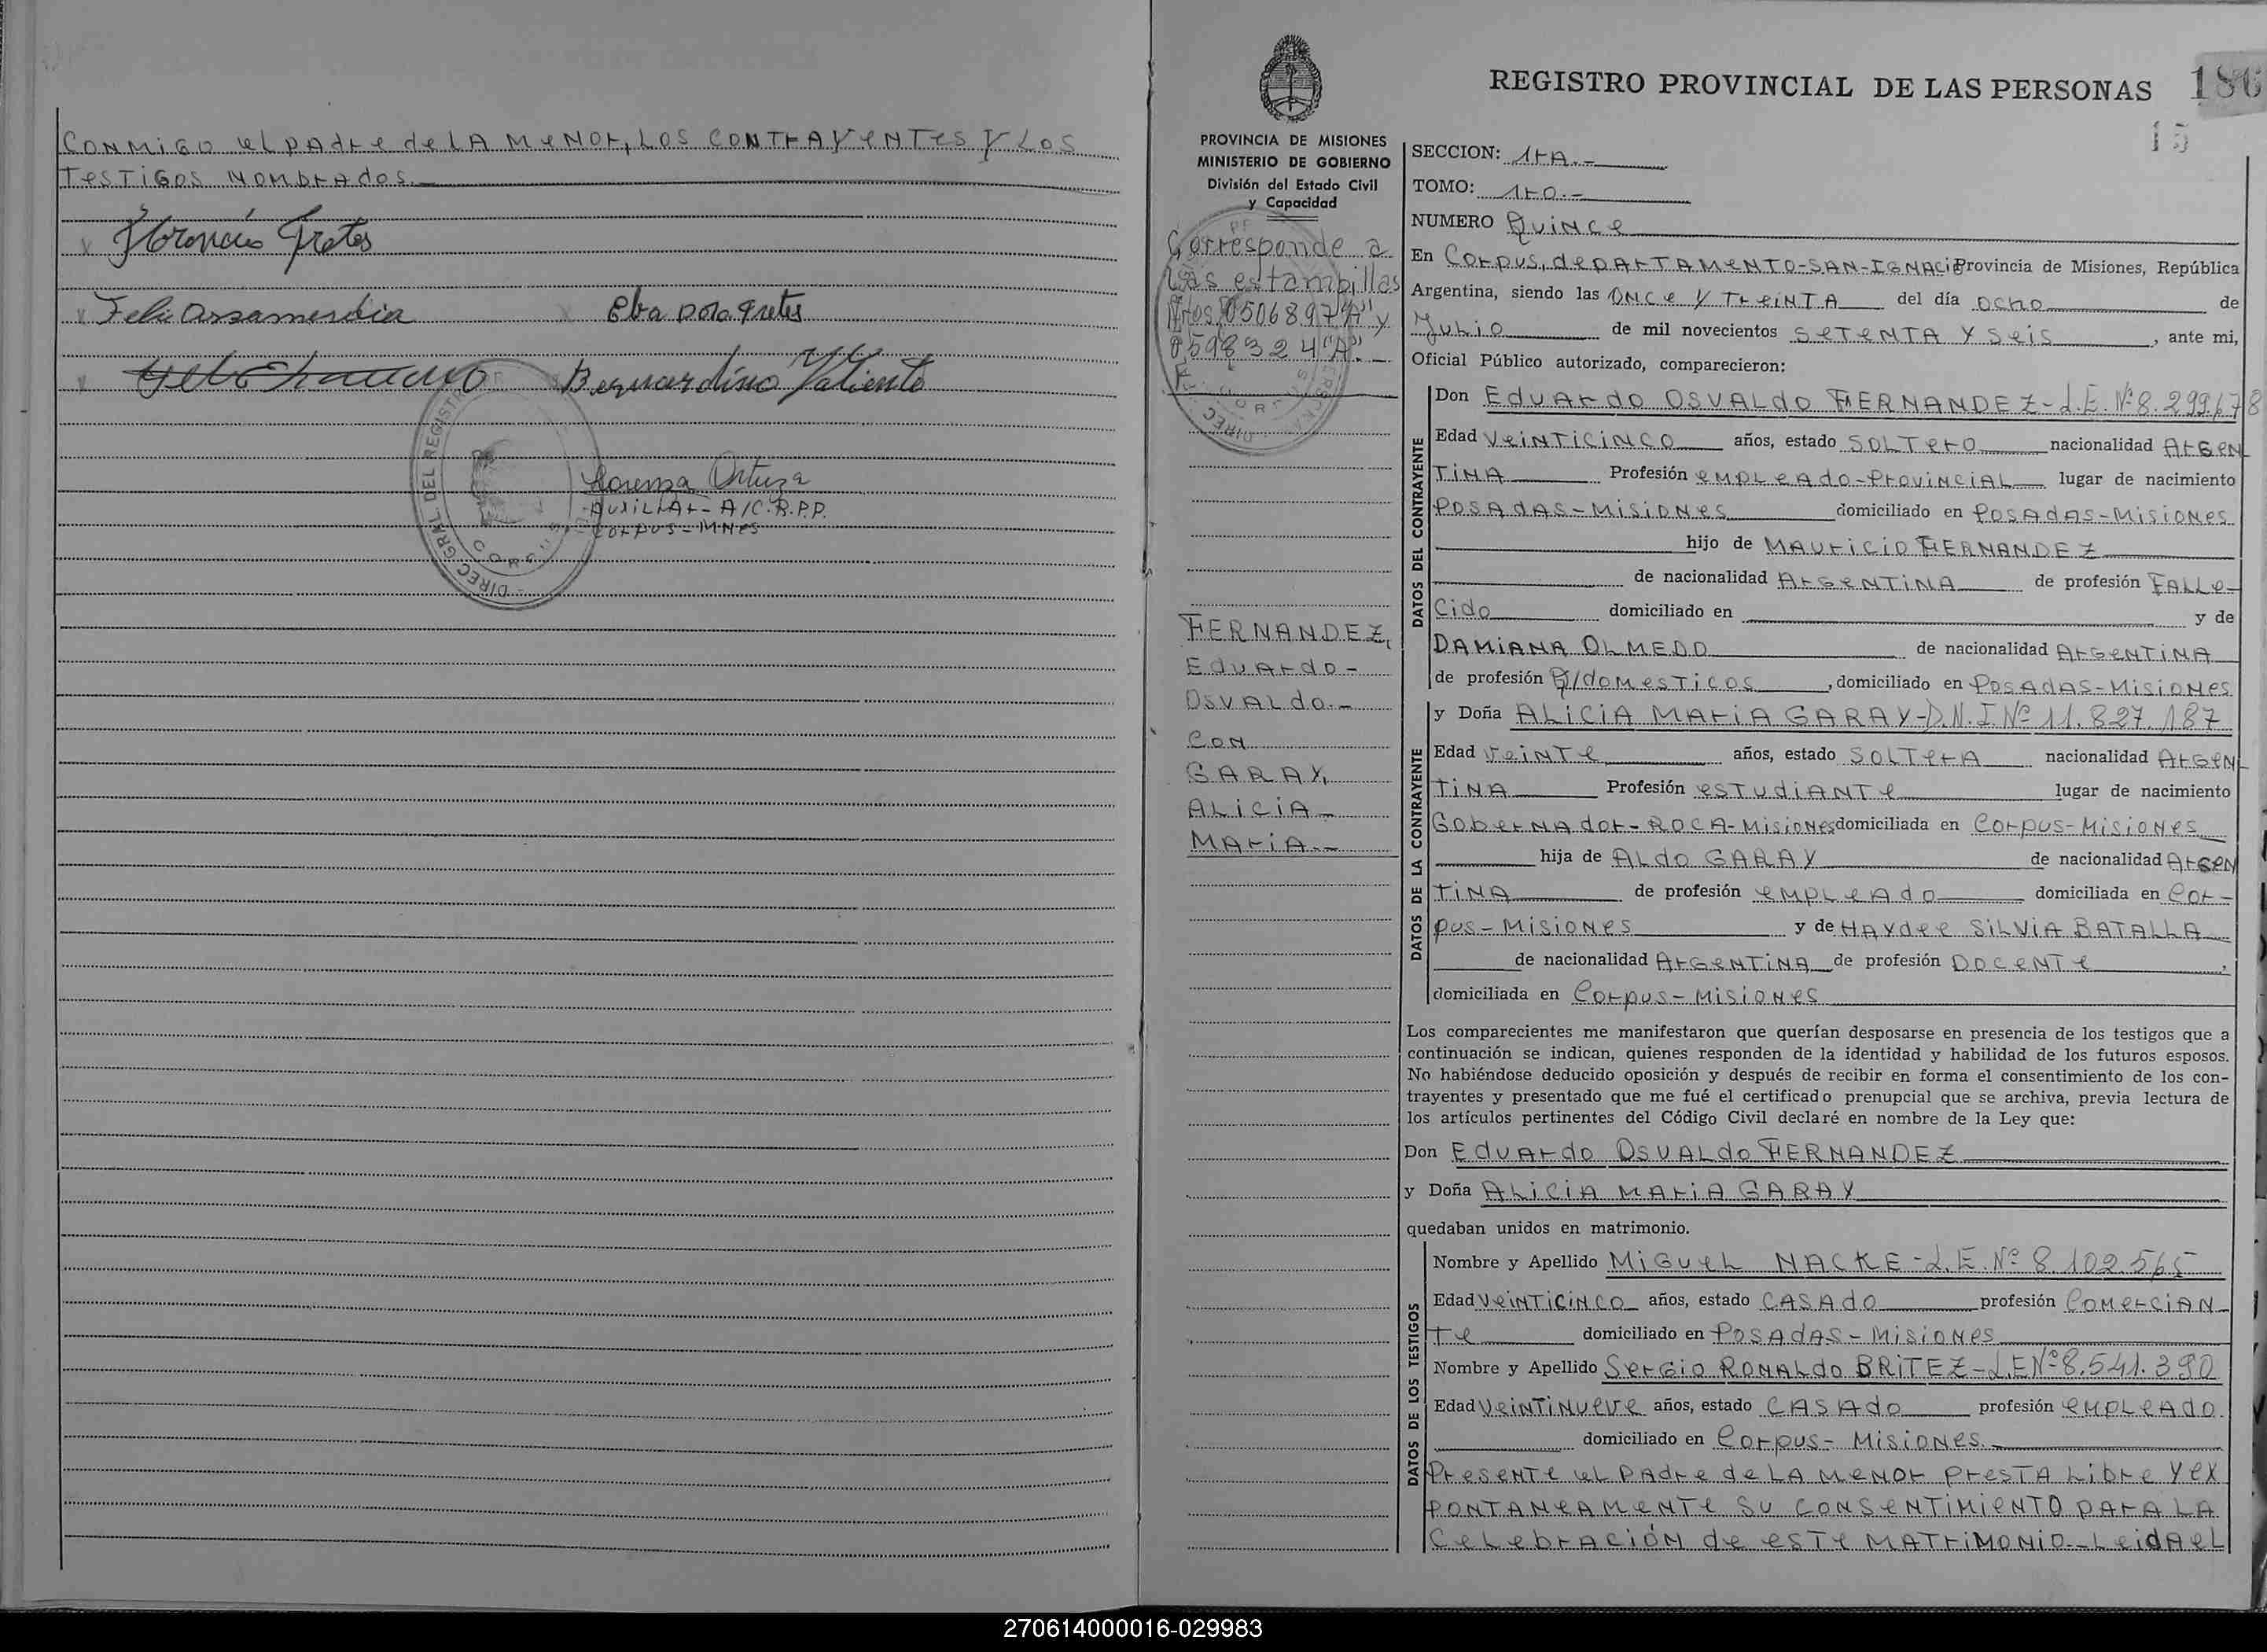 Conmigo el padre de la menor, los contrayentes y los
testigos nombrados.
Florencio Fretes
Felix Arzamendia
Eba Dora Fretes
Bernardino Valiente
Lorenza Ortuza
Auxiliar- A/C.R.P.P.
Corpus - Mnes
DIREC. GRAL DEL REGISTR
CORPUS
REGISTRO PROVINCIAL DE LAS PERSONAS 186
15
PROVINCIA DE MISIONES
MINISTERIO DE GOBIERNO
División del Estado Civil
y Capacidad
Corresponde a
las estampillas
Nros. 0506897"A" y
0598324"A".-
FERNANDEZ,
Eduardo-
Osvaldo.-
con
GARAY,
ALICIA
MARIA.-
SECCION: 1ra.-
TOMO: 1ro.-
NUMERO Quince
En Corpus, departamento-San-Ignacio Provincia de Misiones, República
Argentina, siendo las once y treinta del día ocho de
Julio de mil novecientos setenta y seis, ante mi,
Oficial Público autorizado, comparecieron:
DATOS DEL CONTRAYENTE
Don Eduardo Osvaldo FERNANDEZ-L.E.Nº8.299.678
Edad veinticinco años, estado soltero nacionalidad Argen
tina Profesión empleado-provincial lugar de nacimiento
Posadas-Misiones domiciliado en Posadas-Misiones
hijo de Mauricio FERNANDEZ
de nacionalidad Argentina de profesión Falle-
cido domiciliado en y de
Damiana OLMEDO de nacionalidad Argentina
de profesión Q/domesticos, domiciliado en Posadas-Misiones
DATOS DE LA CONTRAYENTE
y Doña Alicia Maria GARAY-D.N.I.Nº 11.827.187
Edad veinte años, estado soltera nacionalidad Argen
tina Profesión estudiante lugar de nacimiento
Gobernador-Roca-Misiones domiciliada en Corpus-Misiones
hija de Aldo GARAY de nacionalidad Argen
tina de profesión empleado domiciliada en Cor-
pus-Misiones y de Haydee Silvia BATALLA
de nacionalidad Argentina de profesión Docente,
domiciliada en Corpus-Misiones
Los comparecientes me manifestaron que querían desposarse en presencia de los testigos que a
continuación se indican, quienes responden de la identidad y habilidad de los futuros esposos.
No habiéndose deducido oposición y después de recibir en forma el consentimiento de los con-
trayentes y presentado que me fué el certificado prenupcial que se archiva, previa lectura de
los artículos pertinentes del Código Civil declaré en nombre de la Ley que:
Don Eduardo Osvaldo FERNANDEZ
y Doña Alicia Maria GARAY
quedaban unidos en matrimonio.
DATOS DE LOS TESTIGOS
Nombre y Apellido Miguel NACKE-L.E.Nº 8.102.565
Edad veinticinco años, estado casado profesión Comercian
te domiciliado en Posadas-Misiones
Nombre y Apellido Sergio Ronaldo BRITEZ-L.E.Nº8.541.390
Edad veintinueve años, estado casado profesión empleado
domiciliado en Corpus-Misiones.
Presente el padre de la menor presta libre y ex
pontaneamente su consentimiento para la
celebración de este matrimonio.-Leida el
270614000016-029983